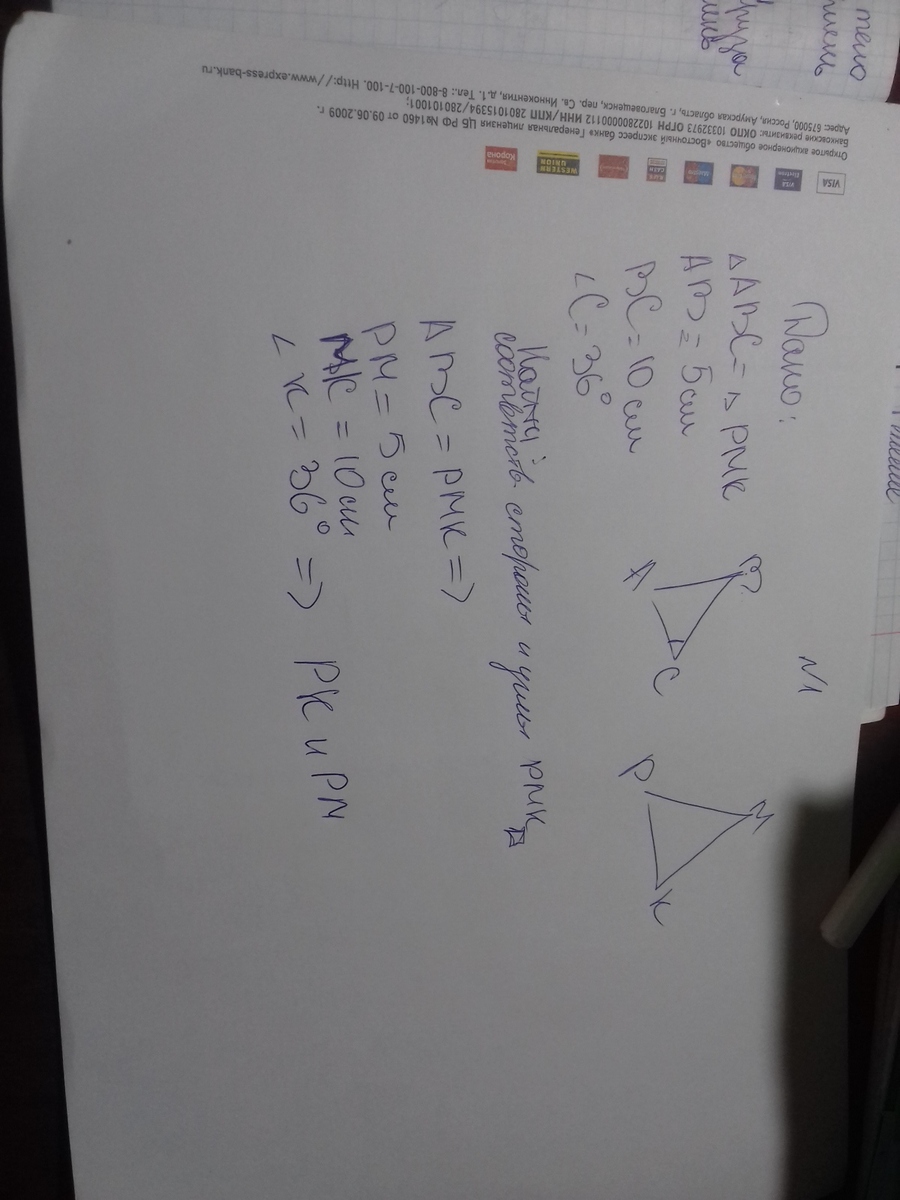 тело
Дано:
N1
△ABC = △ PMK
AB = 5 см
BC = 10 см
∠C = 36°
B
A
C
M
P
K
Найти:
соответств стороны и углы PMK
ABC = PMK =>
PM = 5 см
MK = 10 см
∠K = 36° => PK и PM
VISA
VISA Electron
Maestro
WESTERN UNION
Золотая Корона
Открытое акционерное общество «Восточный экспресс банк» Генеральная лицензия ЦБ РФ №1460 от 09.06.2009 г.
Банковские реквизиты: ОКПО 10332973 ОГРН 1022800000112 ИНН/КПП 2801015394/280101001;
Адрес: 675000, Россия, Амурская область, г. Благовещенск, пер. Св. Иннокентия, д.1. Тел.: 8-800-100-7-100. Http://www.express-bank.ru